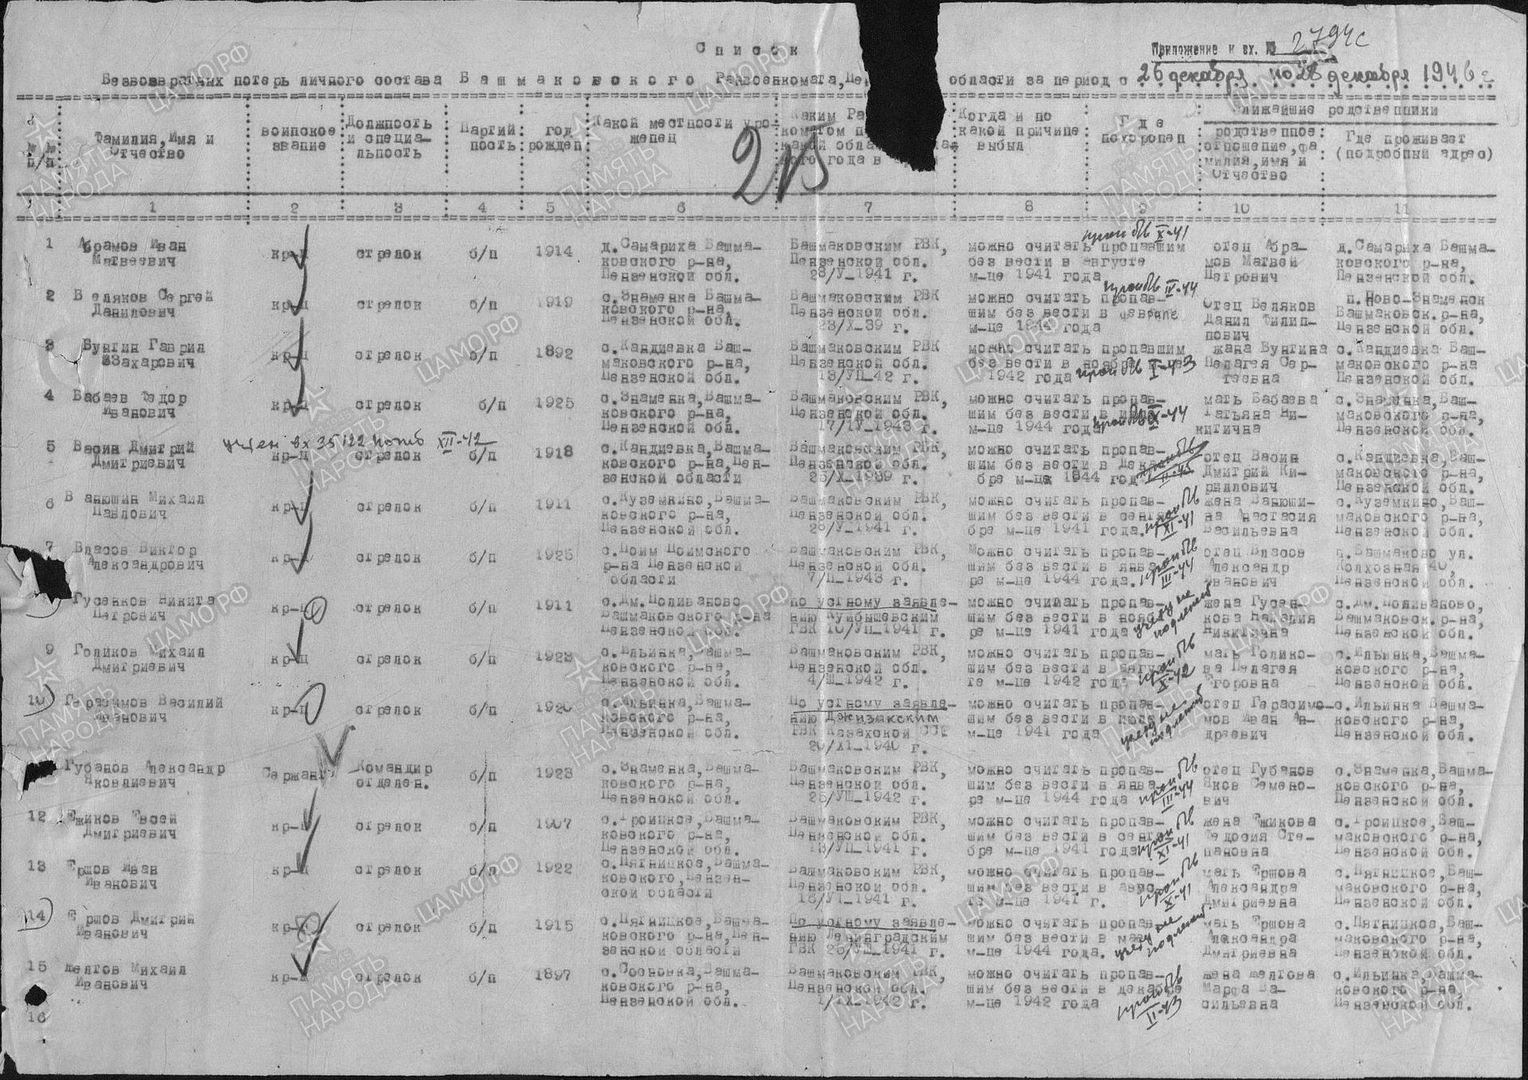 Список
Приложение к вх. №
2794с
Безвозвратных потерь личного состава Башмаковского Райвоенкомата, Пе области за период с 26 декабря по 28 декабря 1946 г
№№ п/п
Фамилия, Имя и Отчество
воинское звание
Должность и специальность
Партийность
год рожден
Какой местности урожен
Каким Ра
Когда и по какой причине выбыл
Где похоронен
Ближайшие родственники
родственное отношение, фамилия, имя и Отчество
Где проживает (подробный адрес)
1 2 3 4 5 6 7 8 9 10 11
1 Абрамов Иван Матвеевич кр-ц стрелок б/п 1914 д. Самариха Башмаковского р-на, Пензенской обл. Башмаковским РВК, Пензенской обл. 28/V_1941 г. можно считать пропавшим без вести в августе м-це 1941 года проп б/в X-41 отец Абрамов Матвей Петрович д. Самариха Башмаковского р-на, Пензенской обл.
2 Беляков Сергей Данилович кр-ц стрелок б/п 1919 с. Знаменка Башмаковского р-на, Пензенской обл. Башмаковским РВК Пензенской обл. 23/X_39 г. можно считать пропавшим без вести в феврале м-це 1944 года проп б/в отец Беляков Данил Филиппович п. Ново-Знаменск Башмаковск. р-на, Пензенской обл.
3 Бунтин Гаврил Захарович кр-ц стрелок б/п 1892 с. Кандиевка Башмаковского р-на, Пензенской обл. Башмаковским РВК Пензенской обл. 13/УП_42 г. можно считать пропавшим без вести в ноябре м-це 1942 года проп б/в I-43 жена Бунтина Пелагея Сергеевна с. Кандиевка Башмаковского р-на Пензенской обл.
4 Бабаев Федор Иванович кр-ц стрелок б/п 1925 с. Знаменка, Башмаковского р-на, Пензенской обл. Башмаковским РВК, Пензенской обл. 17/IV_1943 г. можно считать пропавшим без вести в м-це 1944 года мать Бабаева Татьяна Никитична с. Знаменка, Башмаковского р-на, Пензенской обл.
учтен вх 35122 погиб XII-42
5 Васин Дмитрий Дмитриевич кр-ц стрелок б/п 1918 с. Кандиевка, Башмаковского р-на, Пензенской области Башмаковским РВК, Пензенской обл. 25/X_1939 г. можно считать пропавшим без вести в Декабре м-це 1944 год отец Васин Дмитрий Кириллович с. Кандиевка, Башмаковского р-на, Пензенской обл.
6 Ванюшин Михаил Павлович кр-ц стрелок б/п 1911 с. Куземкино, Башмаковского р-на, Пензенской обл. Башмаковским РВК, Пензенской обл. 28/V_1941 г. можно считать пропавшим без вести в сентябре м-це 1941 года. проп б/в XI-41 жена Ванюшина Анастасия Васильевна с. Куземкино, Башмаковского р-на, Пензенской обл.
7 Власов Виктор Александрович кр-ц стрелок б/п 1925 с. Поим Поимского р-на Пензенской области Башмаковским РВК, Пензенской обл. 7/П_1943 г. Можно считать пропавшим без вести в январе м-це 1944 года. проп б/в III-44 отец Власов Александр Иванович п. Башмаково ул. Колхозная 40, Пензенской обл.
Гусенков Никита Петрович кр-ц стрелок б/п 1911 с. Дм. Поливаново Башмаковского р-на Пензенской обл. по устному заявлению Куйбышевским РВК 10/УП_1941 г. можно считать пропавшим без вести в ноябре м-це 1941 года учету не подлежит жена Гусенкова Наталия Никитична с. Дм. Поливаново, Башмаковского р-на, Пензенской обл.
9 Голиков Михаил Дмитриевич кр-ц стрелок б/п 1923 с. Ильинка, Башмаковского р-на, Пензенской обл. Башмаковским РВК, Пензенской обл. 4/Ш_1942 г. можно считать пропавшим без вести в августе м-це 1942 года проп б/в X-42 мать Голикова Пелагея Егоровна с. Ильинка, Башмаковского р-на, Пензенской обл.
10 Герасимов Василий Иванович кр-ц стрелок б/п 1920 с. Ильинка, Башмаковского р-на, Пензенской обл. По устному заявлению Джизакским РВК Казахской ССР 20/XI_1940 г. можно считать пропавшим без вести в м-це 1941 года учету не подлежит отец Герасимов Иван Андреевич с. Ильинка Башмаковского р-на, Пензенской обл.
Губанов Александр Яковлевич Сержант Командир отделен. б/п 1923 с. Знаменка, Башмаковского р-на, Пензенской обл. Башмаковским РВК, Пензенской обл. 25/УШ_1942 г. можно считать пропавшим без вести в январе м-це 1944 года проп б/в III-44 отец Губанов Яков Семенович с. Знаменка, Башмаковского р-на, Пензенской обл.
12 Ежиков Евсей Дмитриевич кр-ц стрелок б/п 1907 с. Троицкое, Башмаковского р-на, Пензенской обл. Башмаковским РВК, Пензенской обл. 13/УП_1941 г. можно считать пропавшим без вести в сентябре м-це 1941 года проп б/в XI-41 жена Ежикова Федосия Степановна с. Троицкое, Башмаковского р-на, Пензенской обл.
13 Ершов Иван Иванович кр-ц стрелок б/п 1922 с. Пятницкое, Башмаковского, Пензенской области Башмаковским РВК, Пензенской обл. 18/VI_1941 г. можно считать пропавшим без вести в августе м-це 1941 г. проп б/в X-41 мать Ершова Александра Дмитриевна с. Пятницкое, Башмаковского р-на, Пензенской обл.
14 Ершов Дмитрий Иванович кр-ц стрелок б/п 1915 с. Пятницкое, Башмаковского р-на, Пензенской области По устному заявлению Ленинградским РВК 1941 г. можно считать пропавшим без вести в м-це 1944 года. учету не подлежит мать Ершова Александра Дмитриевна с. Пятницкое, Башмаковского р-на, Пензенской обл.
15 Желтов Михаил Иванович кр-ц стрелок б/п 1897 с. Сосновка, Башмаковского р-на, Пензенской обл. Башмаковским РВК, Пензенской обл. 1942 г. можно считать пропавшим без вести в декабре м-це 1942 года проп б/в II-43 жена Желтова Марфа Васильевна с. Ильинка, Башмаковского р-на, Пензенской обл.
16
ПАМЯТЬ НАРОДА
ЦАМО.РФ